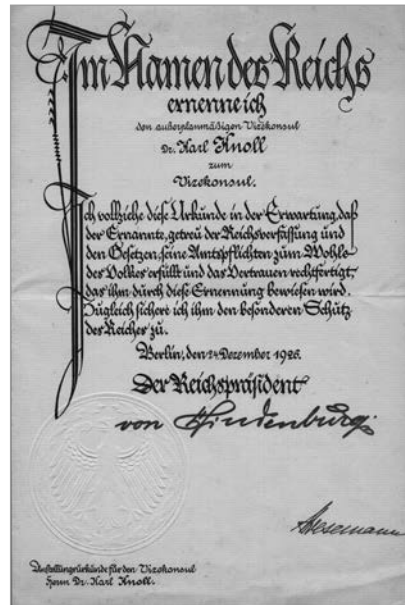 Im Namen des Reichs
ernenne ich
den außerplanmäßigen Vizekonsul
Dr. Karl Knoll
zum
Vizekonsul.
Ich vollziehe diese Urkunde in der Erwartung, daß
der Ernannte, getreu der Reichsverfassung und
den Gesetzen, seine Amtspflichten zum Wohle
des Volkes erfüllt und das Vertrauen rechtfertigt,
das ihm durch diese Ernennung bewiesen wird.
Zugleich sichere ich ihm den besonderen Schutz
des Reiches zu.
Berlin, den 24 Dezember 1926.
Der Reichspräsident
von Hindenburg
Stresemann
Anstellungsurkunde für den Vizekonsul
Herrn Dr. Karl Knoll.